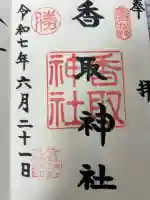 奉拝
香取神社
香取神社
勝
令和七年六月二十一日